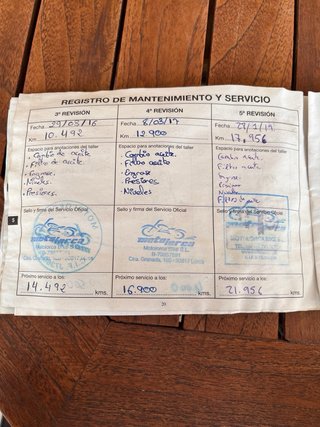 REGISTRO DE MANTENIMIENTO Y SERVICIO
3ª REVISIÓN
Fecha 29/03/16
Km 10.492
Espacio para anotaciones del taller
- Cambio de aceite.
- Filtro de aceite.
- Engrase.
- Niveles.
- Presiones.
Sello y firma del Servicio Oficial
motolorca
Próximo servicio a los:
14.492 kms.
4ª REVISIÓN
Fecha 8/03/17
Km 12900
Espacio para anotaciones del taller
- Cambio aceite.
- Filtro aceite
- Engrase
- Presiones
- Niveles
Sello y firma del Servicio Oficial
motolorca
Próximo servicio a los:
16.900 kms.
5ª REVISIÓN
Fecha
Km 17,956
Espacio para anotaciones del taller
Cambio aceite.
Filtro aceite.
Engrase
Niveles
Sello y firma del Servicio Oficial
Próximo servicio a los:
21.956 kms.
5